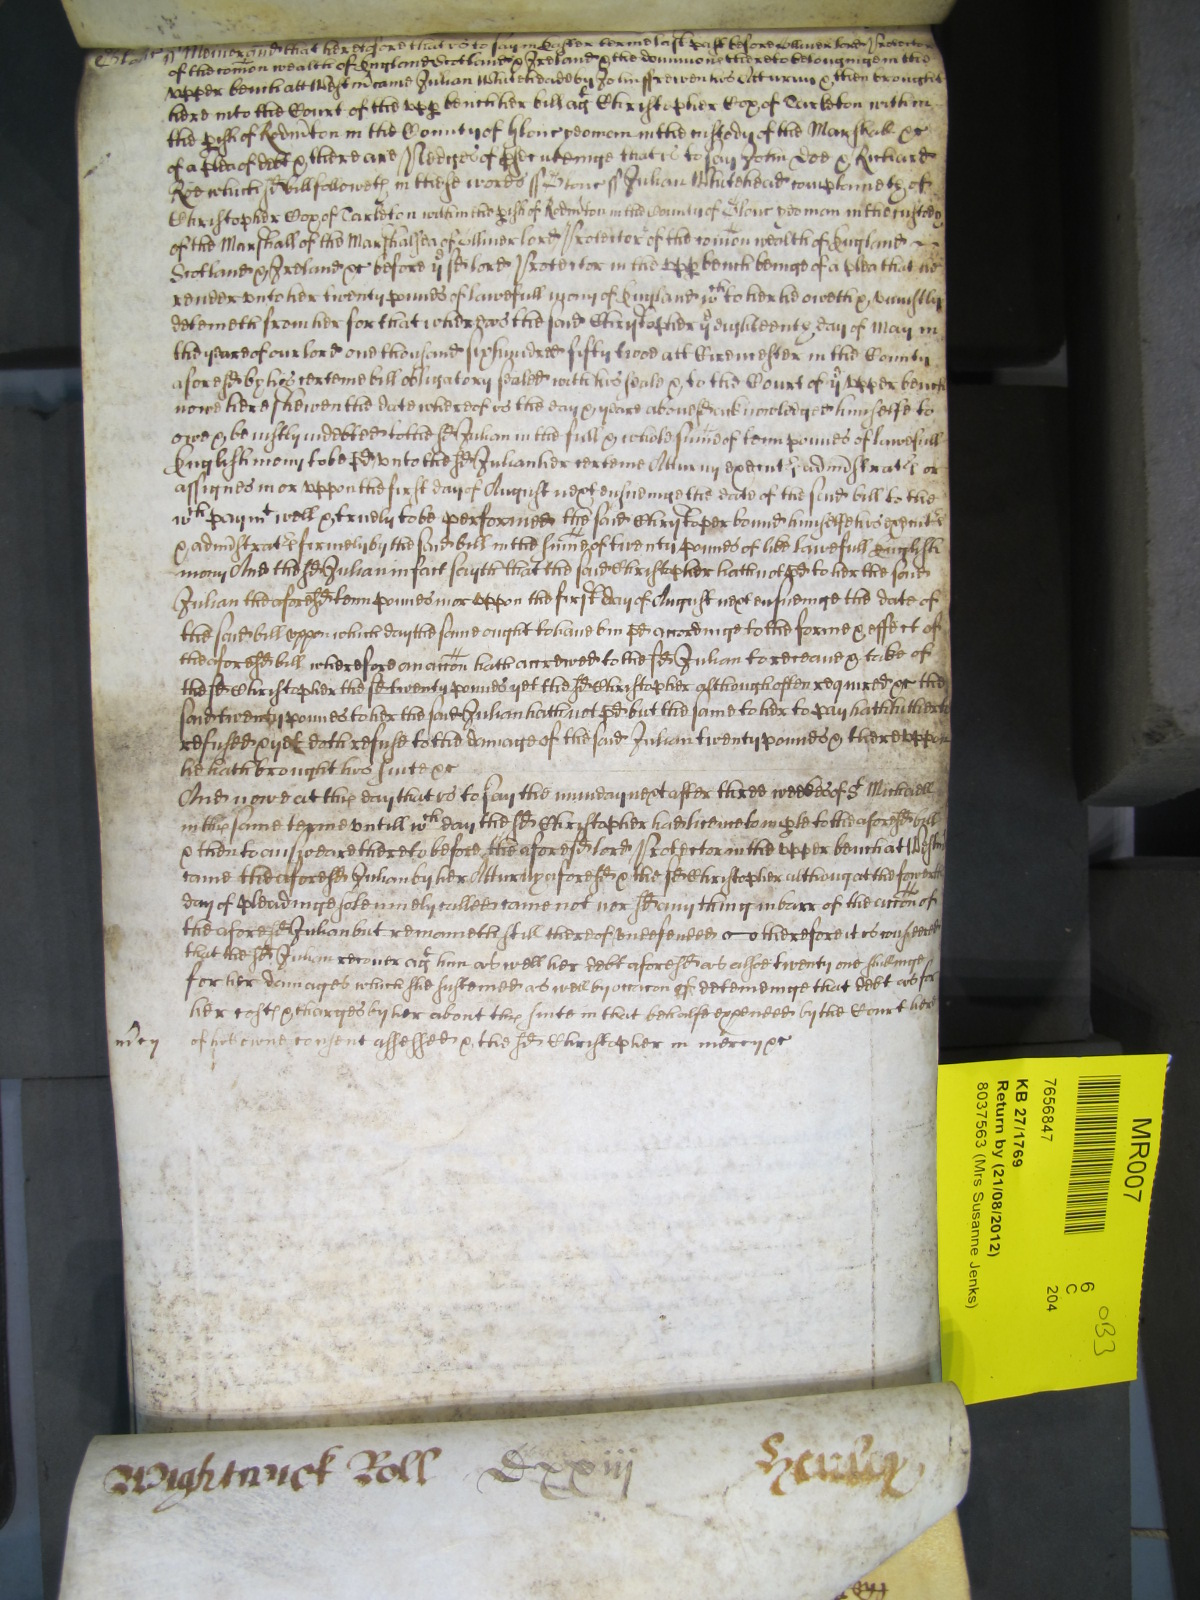 Glouc ss Memorand that heretofore that is to say in Easter terme last past before Oliver lord Protector
of the com̄on wealth of England Scotland & Ireland & the dominions thereto belonginge in the
upper bench att Westm̄ came Julian Whitehead by John Frewen his Atturny & then brought
here into the Court of the upp bench her bill agt Christopher Cox of Tarleton within
the pish of Rodm̄ton in the County of Glouc yeoman in the custody of the Marshall &c
of a plea of debt & there are Pledges of psecuteinge that is to say John Doe & Richard
Roe which sd bill followeth in these words ss Glouc ss Julian Whitehead complaineth of
Christopher Cox of Tarleton within the pish of Rodm̄ton in the County of Glouc yeoman in the custody
of the Marshall of the Marshalsea of Oliver lord Protector of the com̄on wealth of England
Scotland & Ireland &c before ye sd lord Protector in the upp bench beinge of a plea that he
render unto her twenty pounds of lawfull mony of England wch to her he oweth & uniustly
deteineth from her for that whereas the said Christopher ye eighteenth day of May in
the yeare of our lord one thousand six hundred fifty twoe att Cirencester in the County
aforesd by his certeine bill obligatory sealed with his seale & to the Court of ye upper bench
nowe here shewen the date whereof is the day & yeare abovesd acknowledged himselfe to
owe & be iustly indebted to the sd Julian in the full & whole sum̄e of tenn pounds of lawfull
English mony to be pd unto the sd Julian her certeine Atturny executrs administratrs or
assignes in or uppon the first day of August next ensueinge the date of the said bill to the
wch paymt well & truely to be performed the said Christoper bound himselfe his executrs
& administratrs firmely by the said bill in the sum̄e of twenty pounds of like lawfull English
mony And the sd Julian in fact sayth that the said Christopher hath not pd to her the said
Julian the aforesd tenn pounds in or uppon the first day of August next ensueinge the date of
the said bill uppon which day the same ought to have bin pd accordinge to the forme & effect of
the aforesd bill wherefore an acc̄on hath accrewed to the sd Julian to receave & take of
the sd Christopher the sd twenty pounds yet the sd Christopher although often required &c the
said twenty pounds to her the said Julian hath not pd but the same to her to pay hath hitherto
refused & yet doth refuse to the damage of the said Julian twenty pounds & thereuppon
he hath brought his suite &c
And nowe at this day that is to say the munday next after three weekes of St Michaell
in this same terme untill wch day the sd Christopher had licence to imple to the aforesd bill
& then to answeare thereto before the aforesd lord Protector in the upper bench at Westm̄
came the aforesd Julian by her Atturny aforesd & the sd Christopher although at the fowerth
day of pleadinge solemnely called came not nor sd any thing in barr of the acc̄on of
the aforesd Julian but remaineth still thereof undefended therefore it is considered
that the sd Julian recover agt him as well her debt aforesd as alsoe twenty one shillings
for her damages which she susteined as well by occac̄on of deteineinge that debt as for
her costs & charges by her about this suite in that behalfe expended by the Court here
m̄cy of her owne consent assessed & the sd Christopher in mercy &c
Wightwick Roll Dxxiij Henley
MR007
7656847
KB 27/1769
Return by (21/08/2012)
8037563 (Mrs Susanne Jenks)
6
C
204
0B3